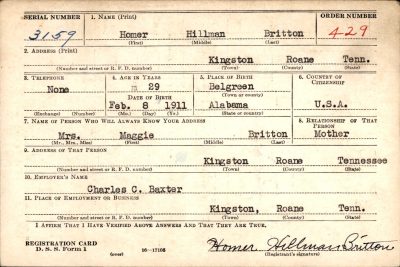 SERIAL NUMBER 1. NAME (Print) ORDER NUMBER
3159 Homer Hillman Britton 429
(First) (Middle) (Last)
2. ADDRESS (Print)
Kingston Roane Tenn.
(Number and street or R. F. D. number) (Town) (County) (State)
3. TELEPHONE 4. AGE IN YEARS 5. PLACE OF BIRTH 6. COUNTRY OF CITIZENSHIP
None 29 Belgreen
DATE OF BIRTH (Town or county)
Feb. 8 1911 Alabama U.S.A.
(Exchange) (Number) (Mo.) (Day) (Yr.) (State or country)
7. NAME OF PERSON WHO WILL ALWAYS KNOW YOUR ADDRESS 8. RELATIONSHIP OF THAT PERSON
Mrs. Maggie Britton Mother
(Mr., Mrs., Miss) (First) (Middle) (Last)
9. ADDRESS OF THAT PERSON
Kingston Roane Tennessee
(Number and street or R. F. D. number) (Town) (County) (State)
10. EMPLOYER'S NAME
Charles C. Baxter
11. PLACE OF EMPLOYMENT OR BUSINESS
Kingston, Roane Tenn.
(Number and street or R. F. D. number) (Town) (County) (State)
I AFFIRM THAT I HAVE VERIFIED ABOVE ANSWERS AND THAT THEY ARE TRUE.
REGISTRATION CARD Homer Hillman Britton
D. S. S. Form 1 (over) 16—17105 (Registrant's signature)